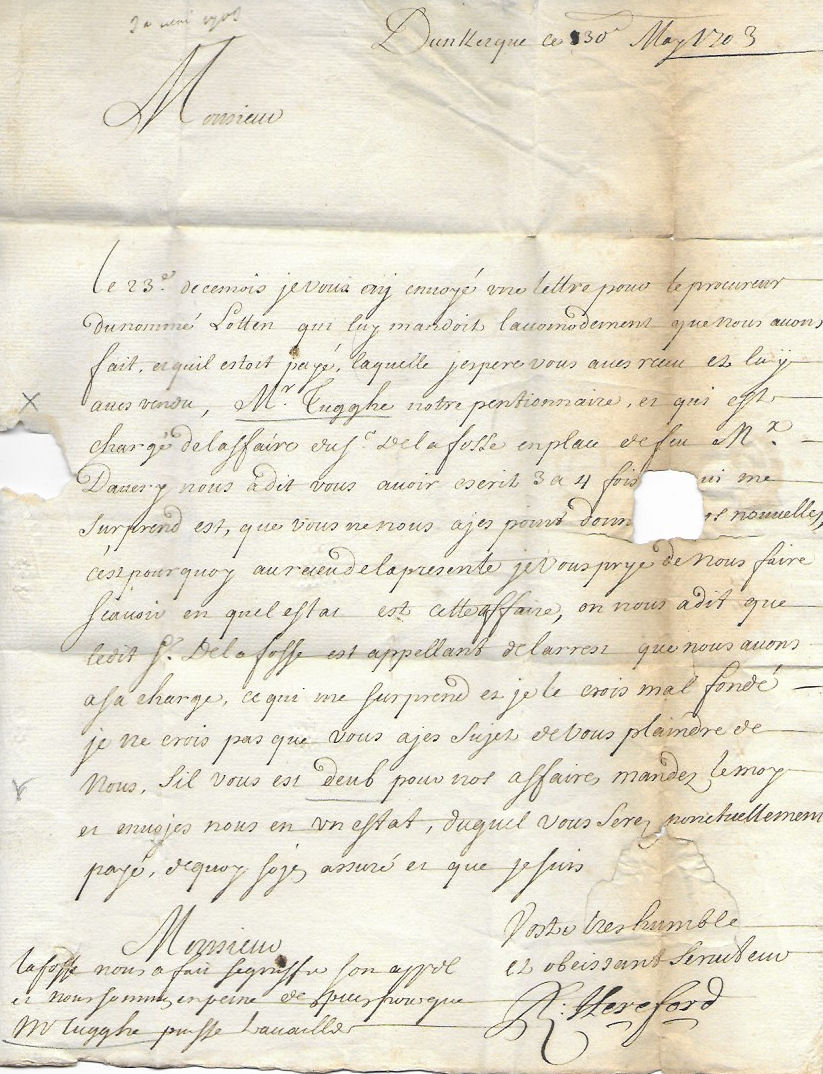 30 mai 1703
Dunkerque ce 30e May 1703
Monsieur
Le 23e. decemois je vous ay envoyé une lettre pour le procureur
dunommé Lotten qui luy mandoit lacomodement que nous avons
fait, et quil estoit payé, laquelle jespere vous aves receu et luÿ
aves rendu, Mr. Tugghe notre pentionnaire, et qui est
chargé delaffaire du Sr. Delafosse en place de feu Mr.
Davery nous a dit vous avoir escrit 3 a 4 fois ui me
surprend est, que vous ne nous ajes point donn nouvelles,
c'est pourquoy au receu de la presente je vous prye de nous faire
scavoir en quel estat est cette affaire, on nous a dit que
ledit Sr. Delafosse est appellant de larrest que nous avons
a sa charge, ce qui me surprend et je le crois mal fondé
je ne crois pas que vous ajes sujet de vous plaindre de
Nous, Sil vous est deub pour nos affaires mandez le moy
et envojes nous en un estat, duquel vous serez ponctuellement
payé, de quoy sojes assuré et que je suis
Monsieur
Vostre tres humble
et obeissant Serviteur
R. Hereford
lafosse nous a fait segniffie son appel
et nous sommes en peine de pour que
Mr Tugghe puisse travailler